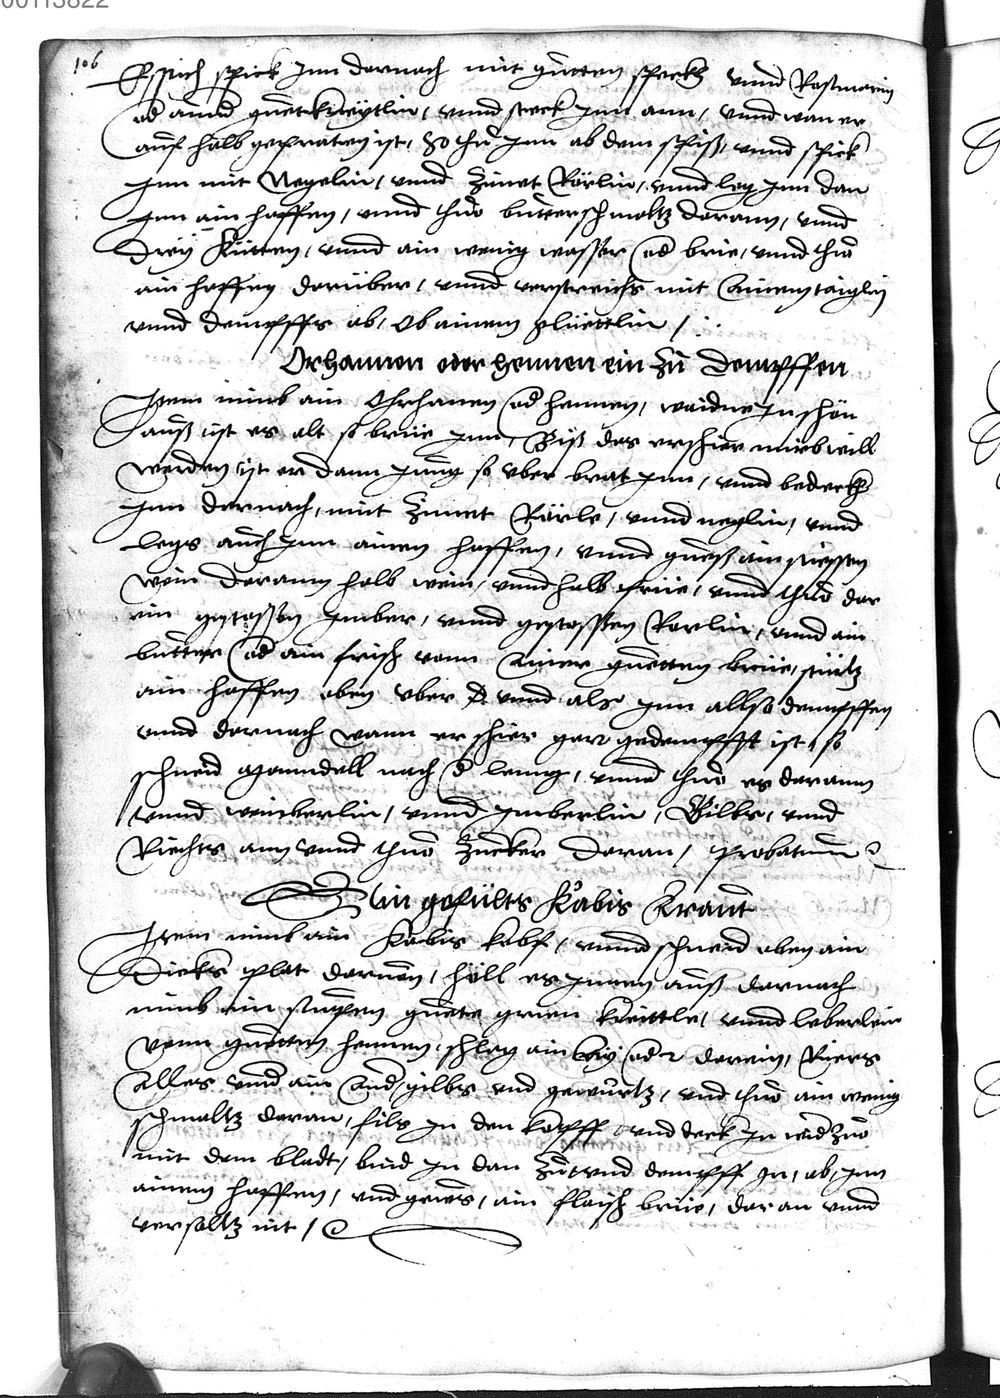 106
Essich spick Inn darnach mit gutten speckh vnnd Rosmarin
od annd guetkreytlin, vnnd steck Inn ann, vnnd wan er
auf halb gepratten ist, so thu Inn ab dem spiß, vnnd spick
Inn mit Negelin, vnnd Zimet Rörlin, vnnd leg Inn dan
Inn ain haffen, vnnd thuo butterschmaltz darann, vnnd
Drey Kütten, vnnd ain wenig wasser od brie, vnnd thuo
ain haffen darüber, vnnd verstreichs mit ainem taiglin
vnnd dempffs ab, ob ainem glüettlin /.
Orhannen oder hennen ein Zu Dempffen
Item nimb ain Orhanen od hennen, waidne In schön
auß ist er alt so brüe Inn, Biß das er schier mürb will
werden ist er dann Jung so vber brat Inn, vnnd bedeckh
Inn darnach, mit Zimet Rörle, vnnd neglin, vnnd
legs auch Inn ainen haffen, vnnd gueß ain siessen
wein darann halb wein, vnnd halb brüe, vnnd thuo dar
ein gestossen Imber, vnnd gestossen Rorlin, vnnd ain
butter od ain frisch vonn ainer guetten brüe, stürtz
ain haffen oben vber vnnd als Inn allso dempffen
vnnd darnach wann er schier gar gedempfft ist, so
schneid Manndell nach d leng, vnnd thuo es darann
vnnd weinberlin, vnnd Imberlin, Gilbs, vnnd
Riechts ann vnnd thuo Zucker daran / probatum
Ein gefülts Kabis Kraut
Item nimb ain Kabis kopf, vnnd schneid oben ain
Dicks plat darvon, höll es Innen auß darnach
nimb ain guete grien kreittle, vnnd leberlein
vonn guetten hennen, schlag ain ay od 2 darein, Riers
alles vnd ain and, gilbs vnd gewürtz, vnd thuo ain wenig
schmaltz daran, fils In den kopff vnd deck In wid Zuo
mit dem bladt, bind In dan Zu vnd dempff In, ab, Inn
ainem haffen, vnd geuß, ain flaisch brüe, daran vnnd
versaltz nit /